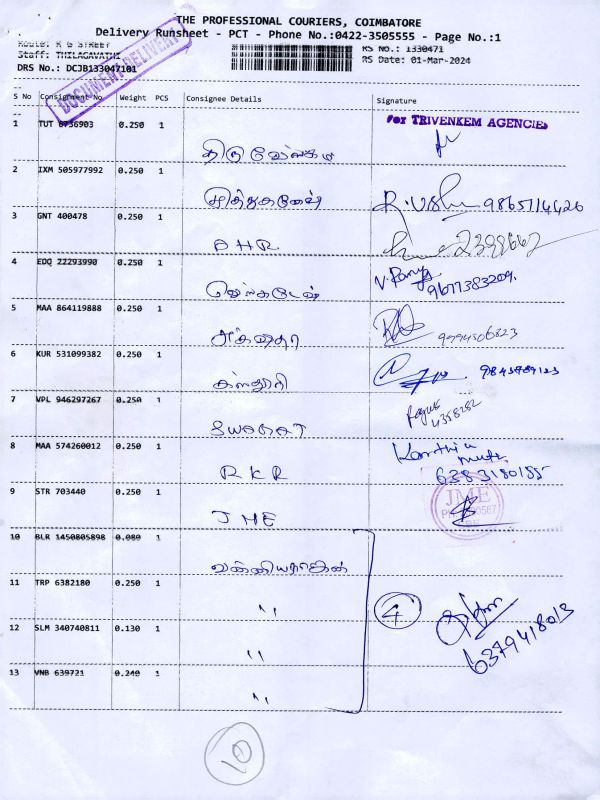 THE PROFESSIONAL COURIERS, COIMBATORE
Delivery Runsheet - PCT - Phone No.:0422-3505555 - Page No.:1
Route: R G STREET
Staff: THILAGAVATHI
RS No.: 1330471
DRS No.: DCJB133047101
RS Date: 01-Mar-2024
DOCUMENT DELIVERY
S No Consignment No Weight PCS Consignee Details Signature
1 TUT 6736903 0.250 1
For TRIVENKEM AGENCIES
திருவேங்கடம
2 IXM 505977992 0.250 1
முத்துகணேஷ் R. Usha 9865714426
3 GNT 400478 0.250 1
AHR 2398662
4 EDQ 22293990 0.250 1
வெங்கடேஷ் 9677383209
5 MAA 864119888 0.250 1
9994506823
6 KUR 531099382 0.250 1
கஸ்தூரி 9843989123
7 VPL 946297267 0.250 1
SWAGAT 4358282
8 MAA 574260012 0.250 1
RKR 6383180155
9 STR 703440 0.250 1
JME
JME
10 BLR 1450805898 0.080 1
11 TRP 6382180 0.250 1
〃 4
12 SLM 340740811 0.130 1
〃 6379418013
13 VNB 639721 0.240 1
〃
10